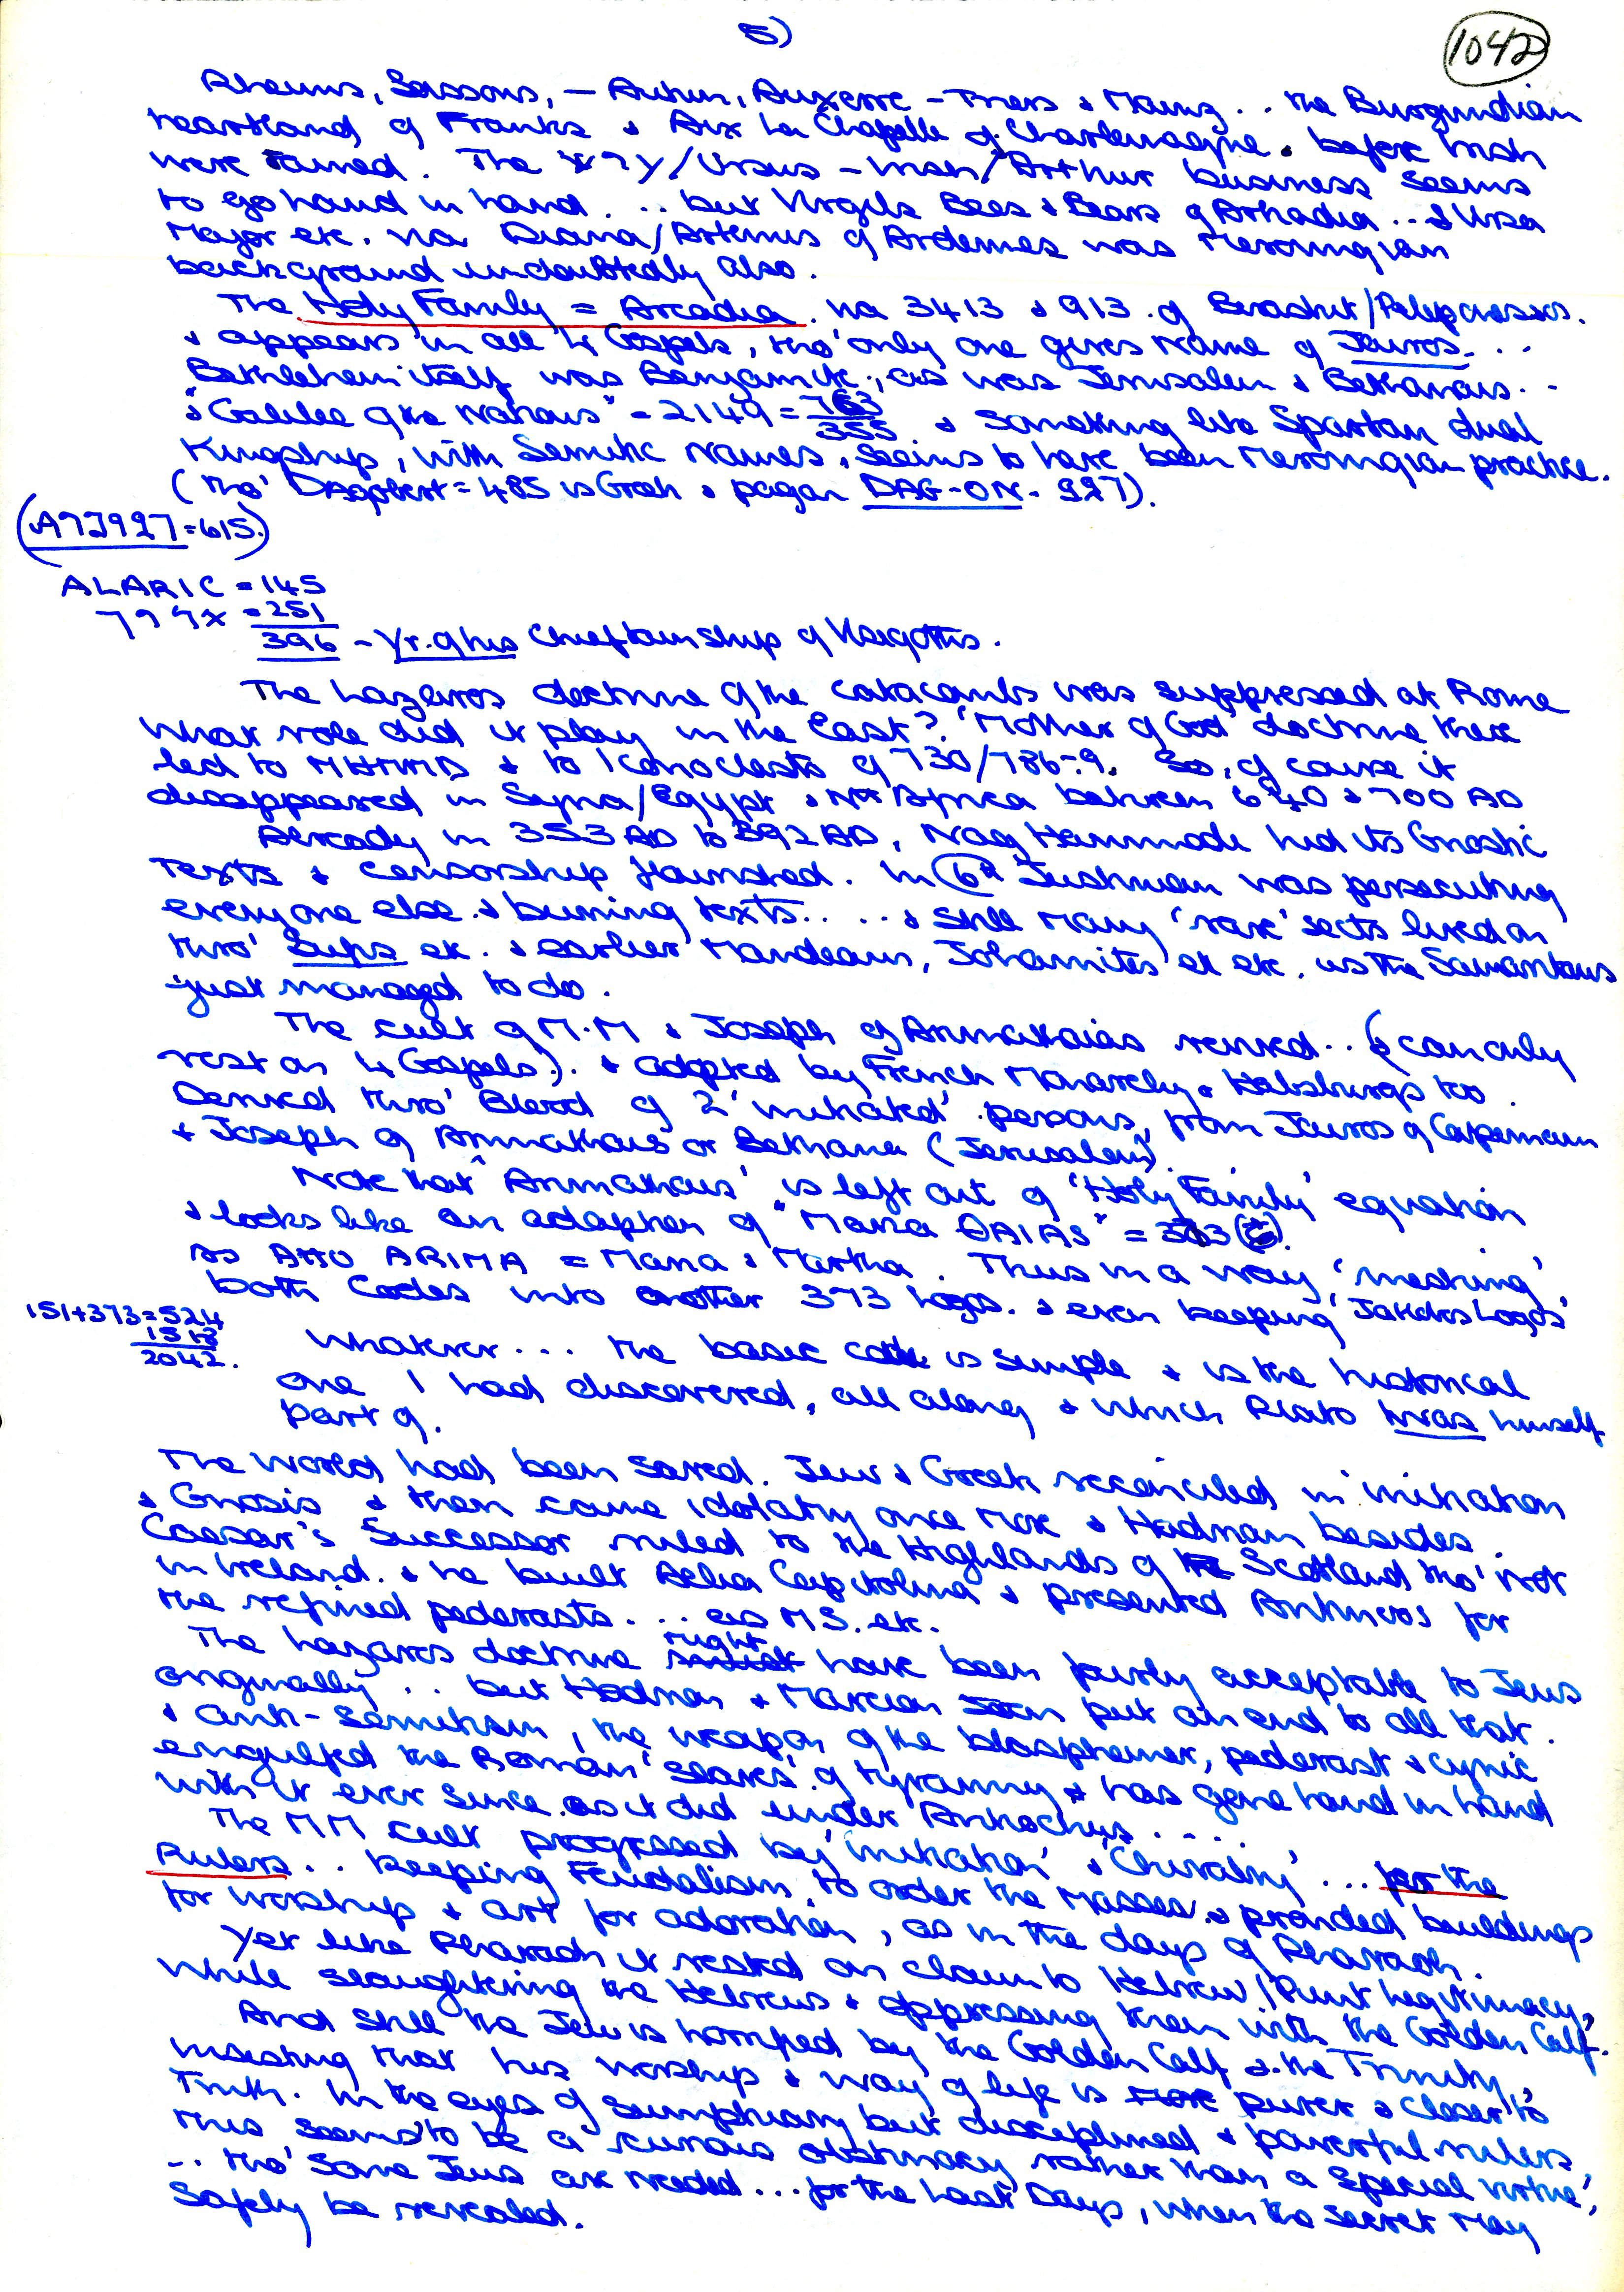 5)
1042
Rheims, Soissons, – Autun, Auxerre – Triers & Mainz .. the Burgundian
heartland of Franks & Aix La Chapelle of Charlemagne. before Irish
were tamed. The /Ursus – Man/Arthur business seems
to go hand in hand ... but Virgils Bees & Bears of Arkadia ... & Ursa
Major etc. via Diana/Artemis of Ardennes was Merovingian
background undoubtedly also.
The Holy Family = Arcadia. via 3413 & 913. of /Peloponessos.
& appears in all 4 Gospels, tho' only one gives name of Jairos...
Bethlehem itself was Benjamite., as was Jerusalem & Bethanais. -
& "Galilee of the Nations" – 2149 = 763
355 & Something like Spartan dual
Kingship, with Semitic names, seems to have been Merovingian practice.
(tho' Dagobert = 485 is Greek & pagan DAG-ON - 227).
( = 615.)
ALARIC = 145
= 251
396 – Yr. of his Chieftainship of Visigoths.
The Lazaros doctrine of the Catacombs was suppressed at Rome
What role did it play in the East? 'Mother of God' doctrine there
led to MHMD & to Iconoclasts of 730/786-9. So, of course it
disappeared in Syria/Egypt & Nth Africa between 640 & 700 AD
Already in 353 AD to 392 AD, Nag Hammadi hid its Gnostic
Texts & Censorship flourished. In 6th Justinian was persecuting
everyone else & burning texts.. .. & still many 'rare' sects lived on
thro' Sufis etc. & earlier Mandeans, Johannites etc etc. as the Samaritans
just managed to do.
The cult of M.M & Joseph of Arimathaias revived .. (& can only
rest on 4 Gospels). & adopted by French Monarchy & Habsburgs too.
Derived thro' Blood of 2 'initiated' persons, from Jairos of Capernaum
& Joseph of Arimathaias or Bethania (Jerusalem).
Note that 'Arimathaias' is left out of 'Holy Family' equation
& looks like an adaption of "Maria ΘAIAS" = 373
as ARIMA = Maria & Martha. Thus in a way 'meshing'
both Codes into another 373 Logos. & even keeping 'Jakobs Logos'
151+373=524
1518
2042.
Whatever ... the basic code is simple & is the historical
one I had discovered, all along & which Plato was himself
part of.
The World had been saved. Jew & Greek reconciled in initiation
& Gnosis & then came idolatry once more & Hadrian besides.
Caesar's Successor ruled to the Highlands of Scotland tho' not
in Ireland. & he built Aelia Capitolina & presented Antinoos for
the refined pederasts ... as MS. etc.
The Lazaros doctrine might have been fairly acceptable to Jews
originally .. but Hadrian & Marcion soon put an end to all that.
& Anti-Semitism, the weapon of the blasphemer, pederast & cynic
engulfed the Roman 'Slaves' of tyranny & has gone hand in hand
with it ever since. as it did under Antiochus ....
The MM cult progressed by 'initiation' & 'Chivalry' ... for the
Rulers .. keeping Feudalism, to order the Masses & provided buildings
for worship & art for adoration, as in the days of Pharaoh.
Yet like Pharaoh it rested on claim to Hebrew/Punt legitimacy,
while slaughtering the Hebrews & oppressing them with the Golden Calf.
And still the Jew is harried by the Golden Calf & the Trinity,
insisting that his worship & way of life is purer & closer to
Truth. In the eyes of sumptuary but disciplined & powerful rulers,
this seems to be a curious obstinacy rather than a special virtue',
.. tho' some Jews are needed ... for the Last Days, when the secret may
safely be revealed.